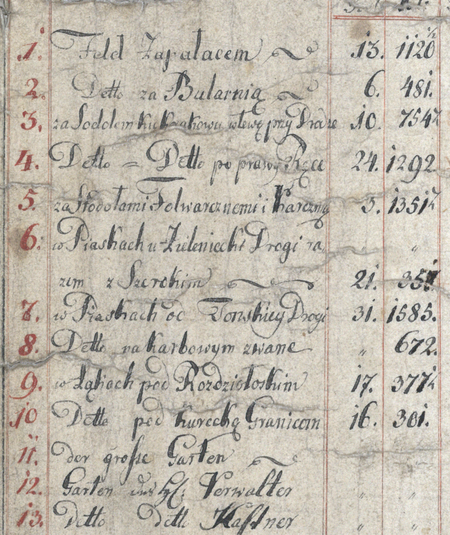 1. Feld Zapalacem 13. 1120
2. Detto za Bularnią 6. 481.
3. za Sodolem ku krakowu w lewę przy Drodze 10. 754
4. Detto = Detto po prawey Ręce 24. 1292
5. za Stodołami Folwarcznemi i Karczmą 3. 1351
6. w Piaskach u Drogi ra „
zem z Szerokim 21. 351
7. w Piaskach od Drogi 31. 1585.
8. Detto na karbowym zwane „ 672.
9. w Łąkach pod 17. 377
10 Detto pod Granicom 16. 301.
11. der grosse Garten „ „
12. Garten Verwalter „ „
13. Detto Detto Kastner „ „